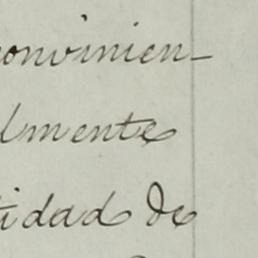 convinien-
lmente
tidad de